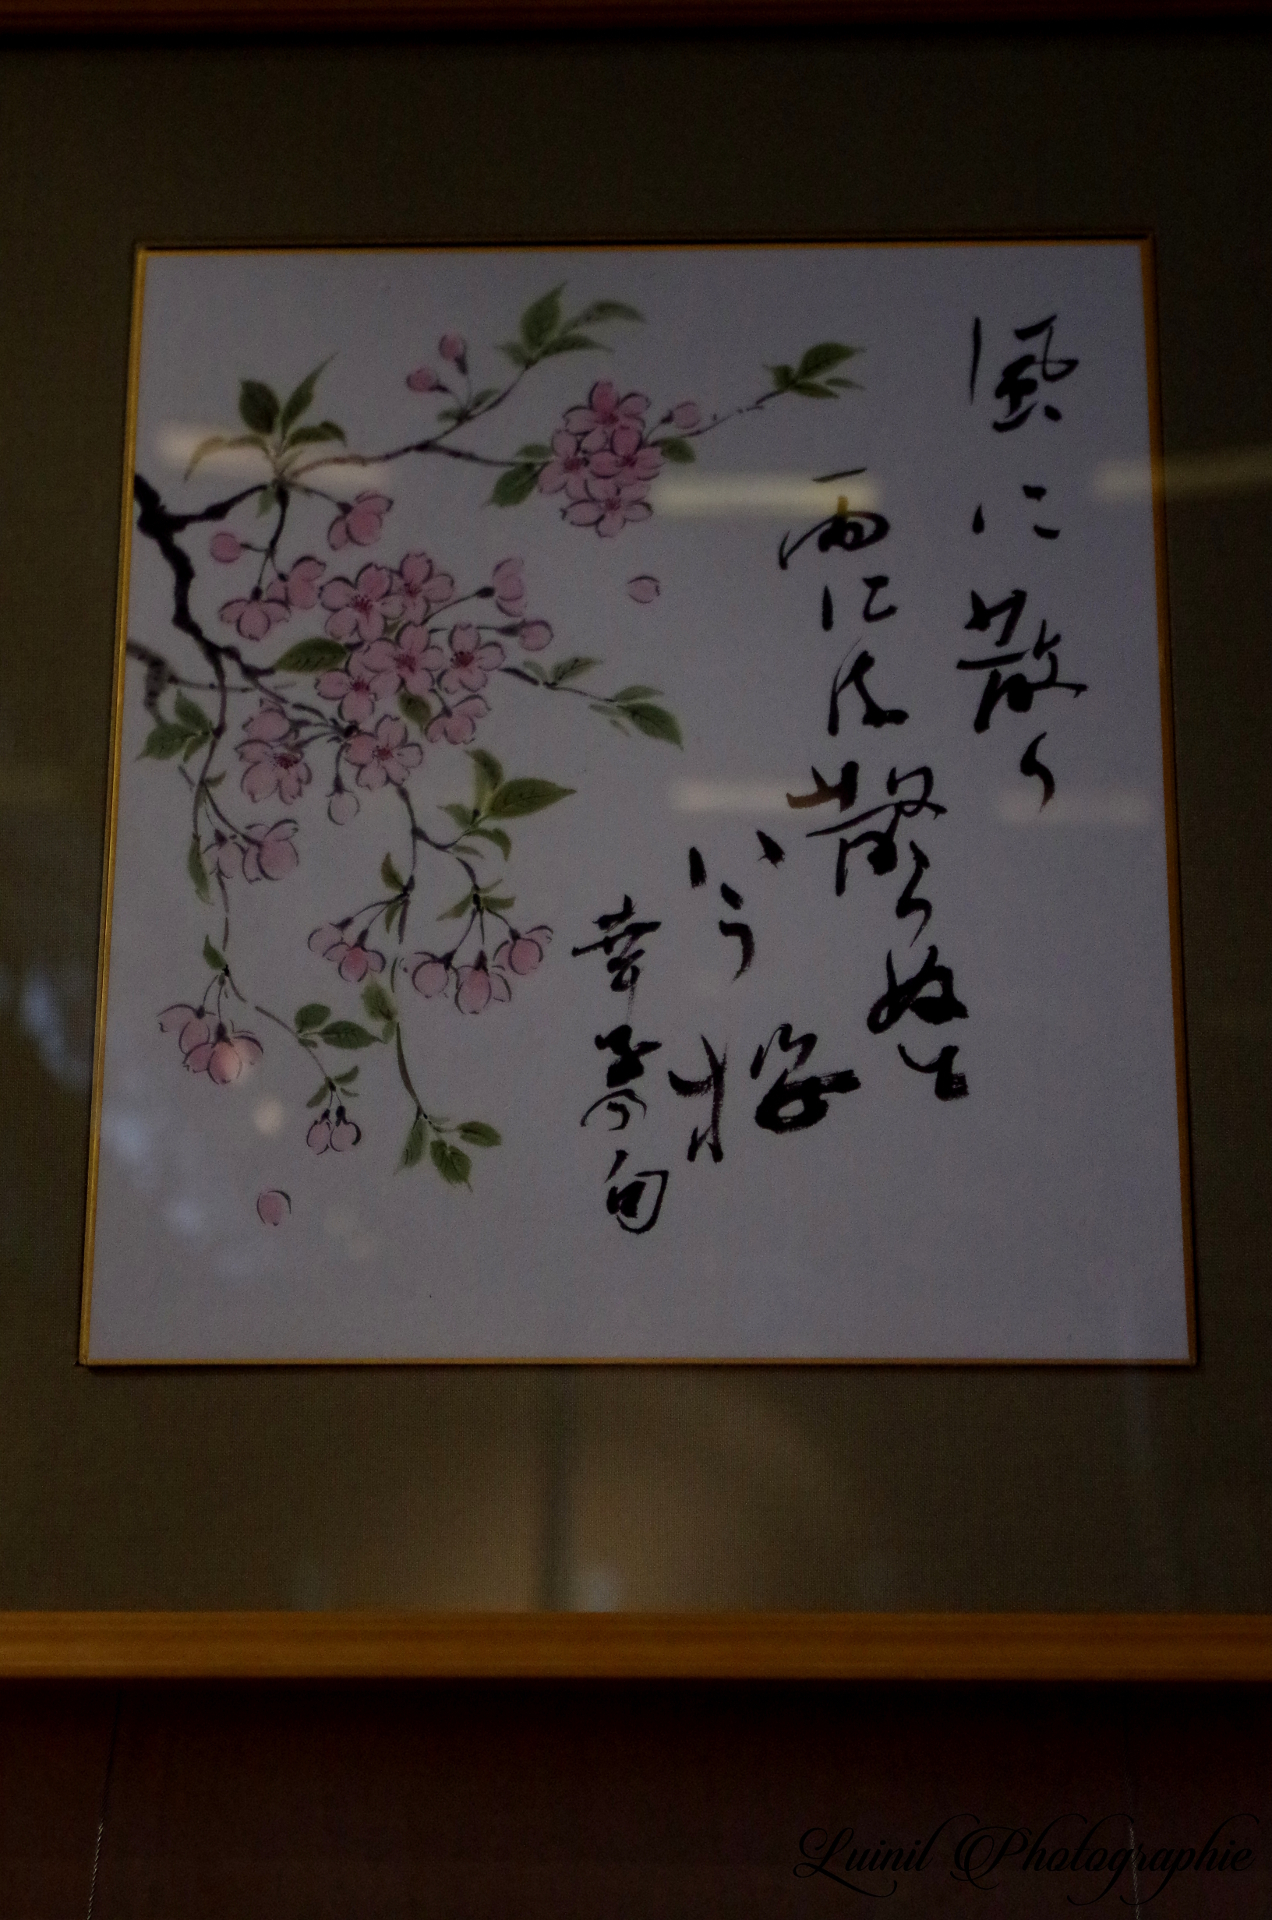 風に散り
雨には散らぬと
いう桜
幸子句
Luinil Photographie